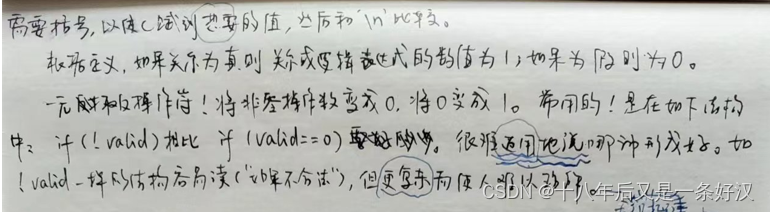 需要括号,以使c试到想要的值,然后和'\n'比较。
根据定义,如果关系为真则关系或逻辑表达式的数值为1;如果为假则为0。
一元反操作符!将非零操作数变成0,将0变成1。常用的!是在如下结构
中:if(!valid)相比 if(valid==0)。很难适用地说哪种形式好。如
!valid一样的结构容易读("如果不合法"),但更复杂而使人难以理解。
CSDN @十八年后又是一条好汉